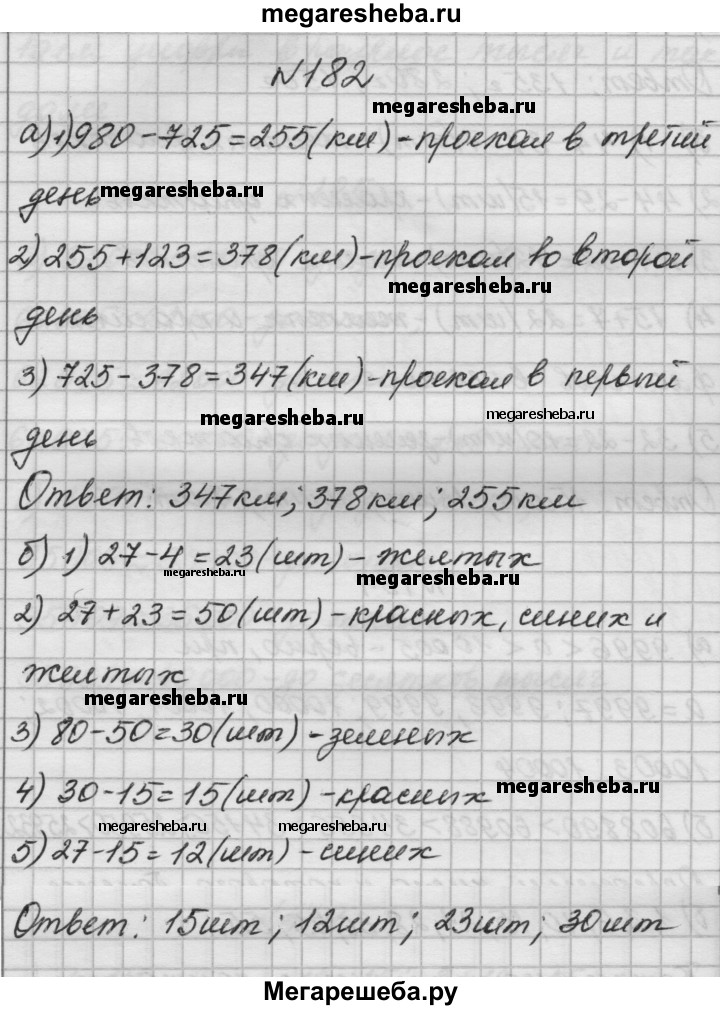 megaresheba.ru
№182
megaresheba.ru
а)1)980-725=255(км)-проехал в третий
день megaresheba.ru
2)255+123=378(км)-проехал во второй
megaresheba.ru
день
3)725-378=347(км)-проехал в первый
megaresheba.ru megaresheba.ru
день
Ответ: 347км; 378км; 255км
б) 1) 27-4=23(шт)-желтых
megaresheba.ru megaresheba.ru
2) 27+23=50(шт)-красных, синих и
желтых
megaresheba.ru
3) 80-50=30(шт)-зеленых
4) 30-15=15(шт)-красных megaresheba.ru
megaresheba.ru megaresheba.ru
5)27-15=12(шт)-синих
Ответ: 15шт; 12шт; 23шт; 30шт
Мегарешеба.ру